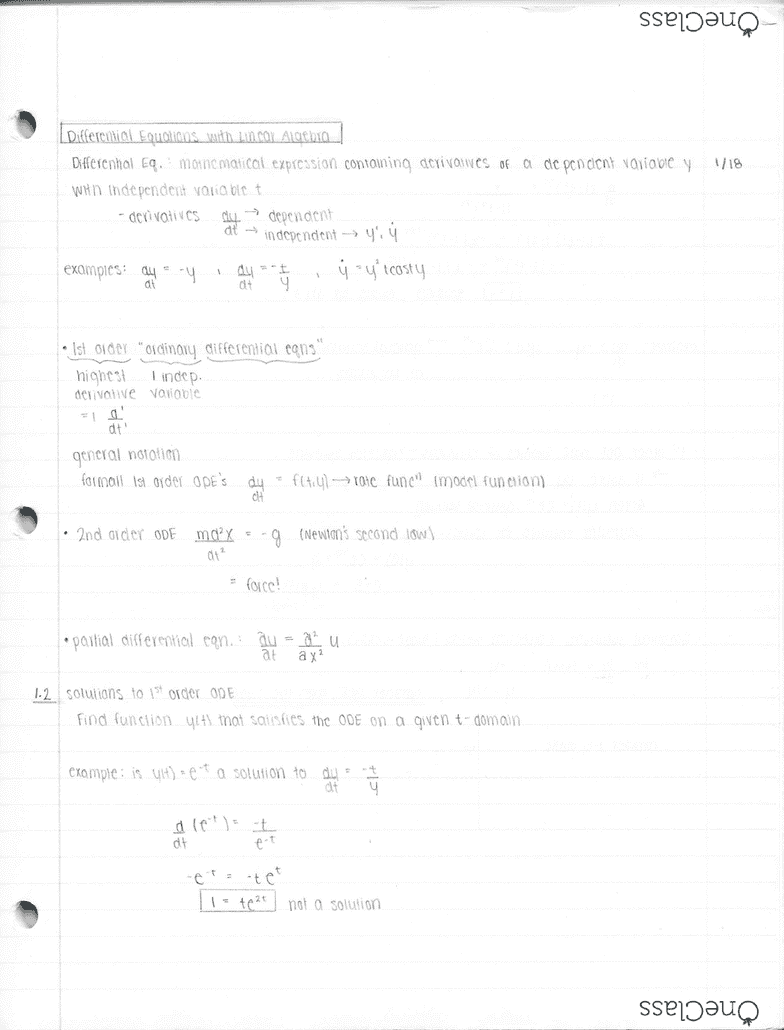 OneClass
Differential Equations with Linear Algebra
Differential Eq.: mathematical expression containing derivatives of a dependent variable y 1/18
with independent variable t
- derivatives dy/dt → dependent
→ independent → y', ẏ
examples: dy/dt = -y , dy/dt = -t/y , ẏ = y² + cost y
• 1st order "ordinary differential eqns"
highest 1 indep.
derivative variable
= 1 d'/dt'
general notation
formall 1st order ODE's dy/dt = f(t,y) → rate func" (model function)
• 2nd order ODE md²x/dt² = -g (Newton's second law)
= force!
• partial differential eqn.: ∂u/∂t = ∂²/∂x² u
1.2 solutions to 1st order ODE
Find function y(t) that satisfies the ODE on a given t-domain
example: is y(t) = e^-t a solution to dy/dt = -t/y
d/dt (e^-t) = -t/e^-t
-e^-t = -te^t
1 = te^2t not a solution
OneClass